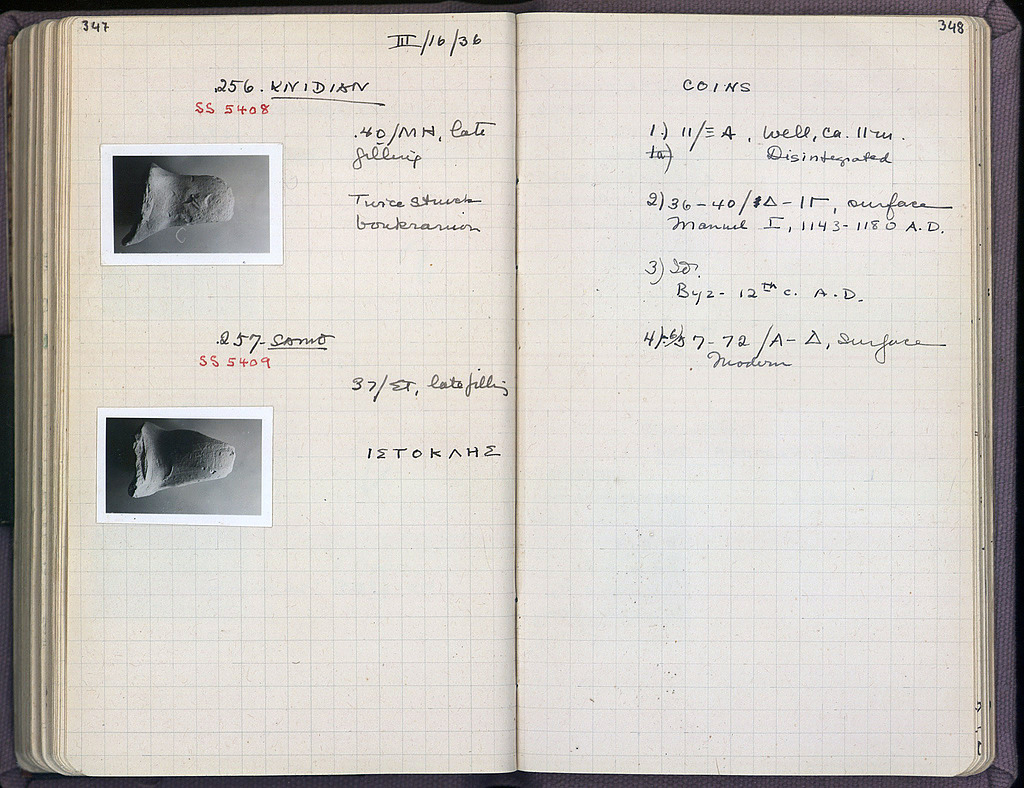 347
III/16/36
256. KNIDIAN
SS 5408
40/MH, late
filling
Twice struck
boukranion
257
SS 5409
37/ΣΤ, late filling
ΙΣΤΟΚΛΗΣ
348
COINS
1.) 11/Ξ Α, well, ca. 11m.
Disintegrated
2) 36-40/Δ-ΙΓ, surface
Manuel I, 1143-1180 A.D.
3) Id.
Byz- 12th c. A.D.
57-72/Α-Δ, surface
Modern